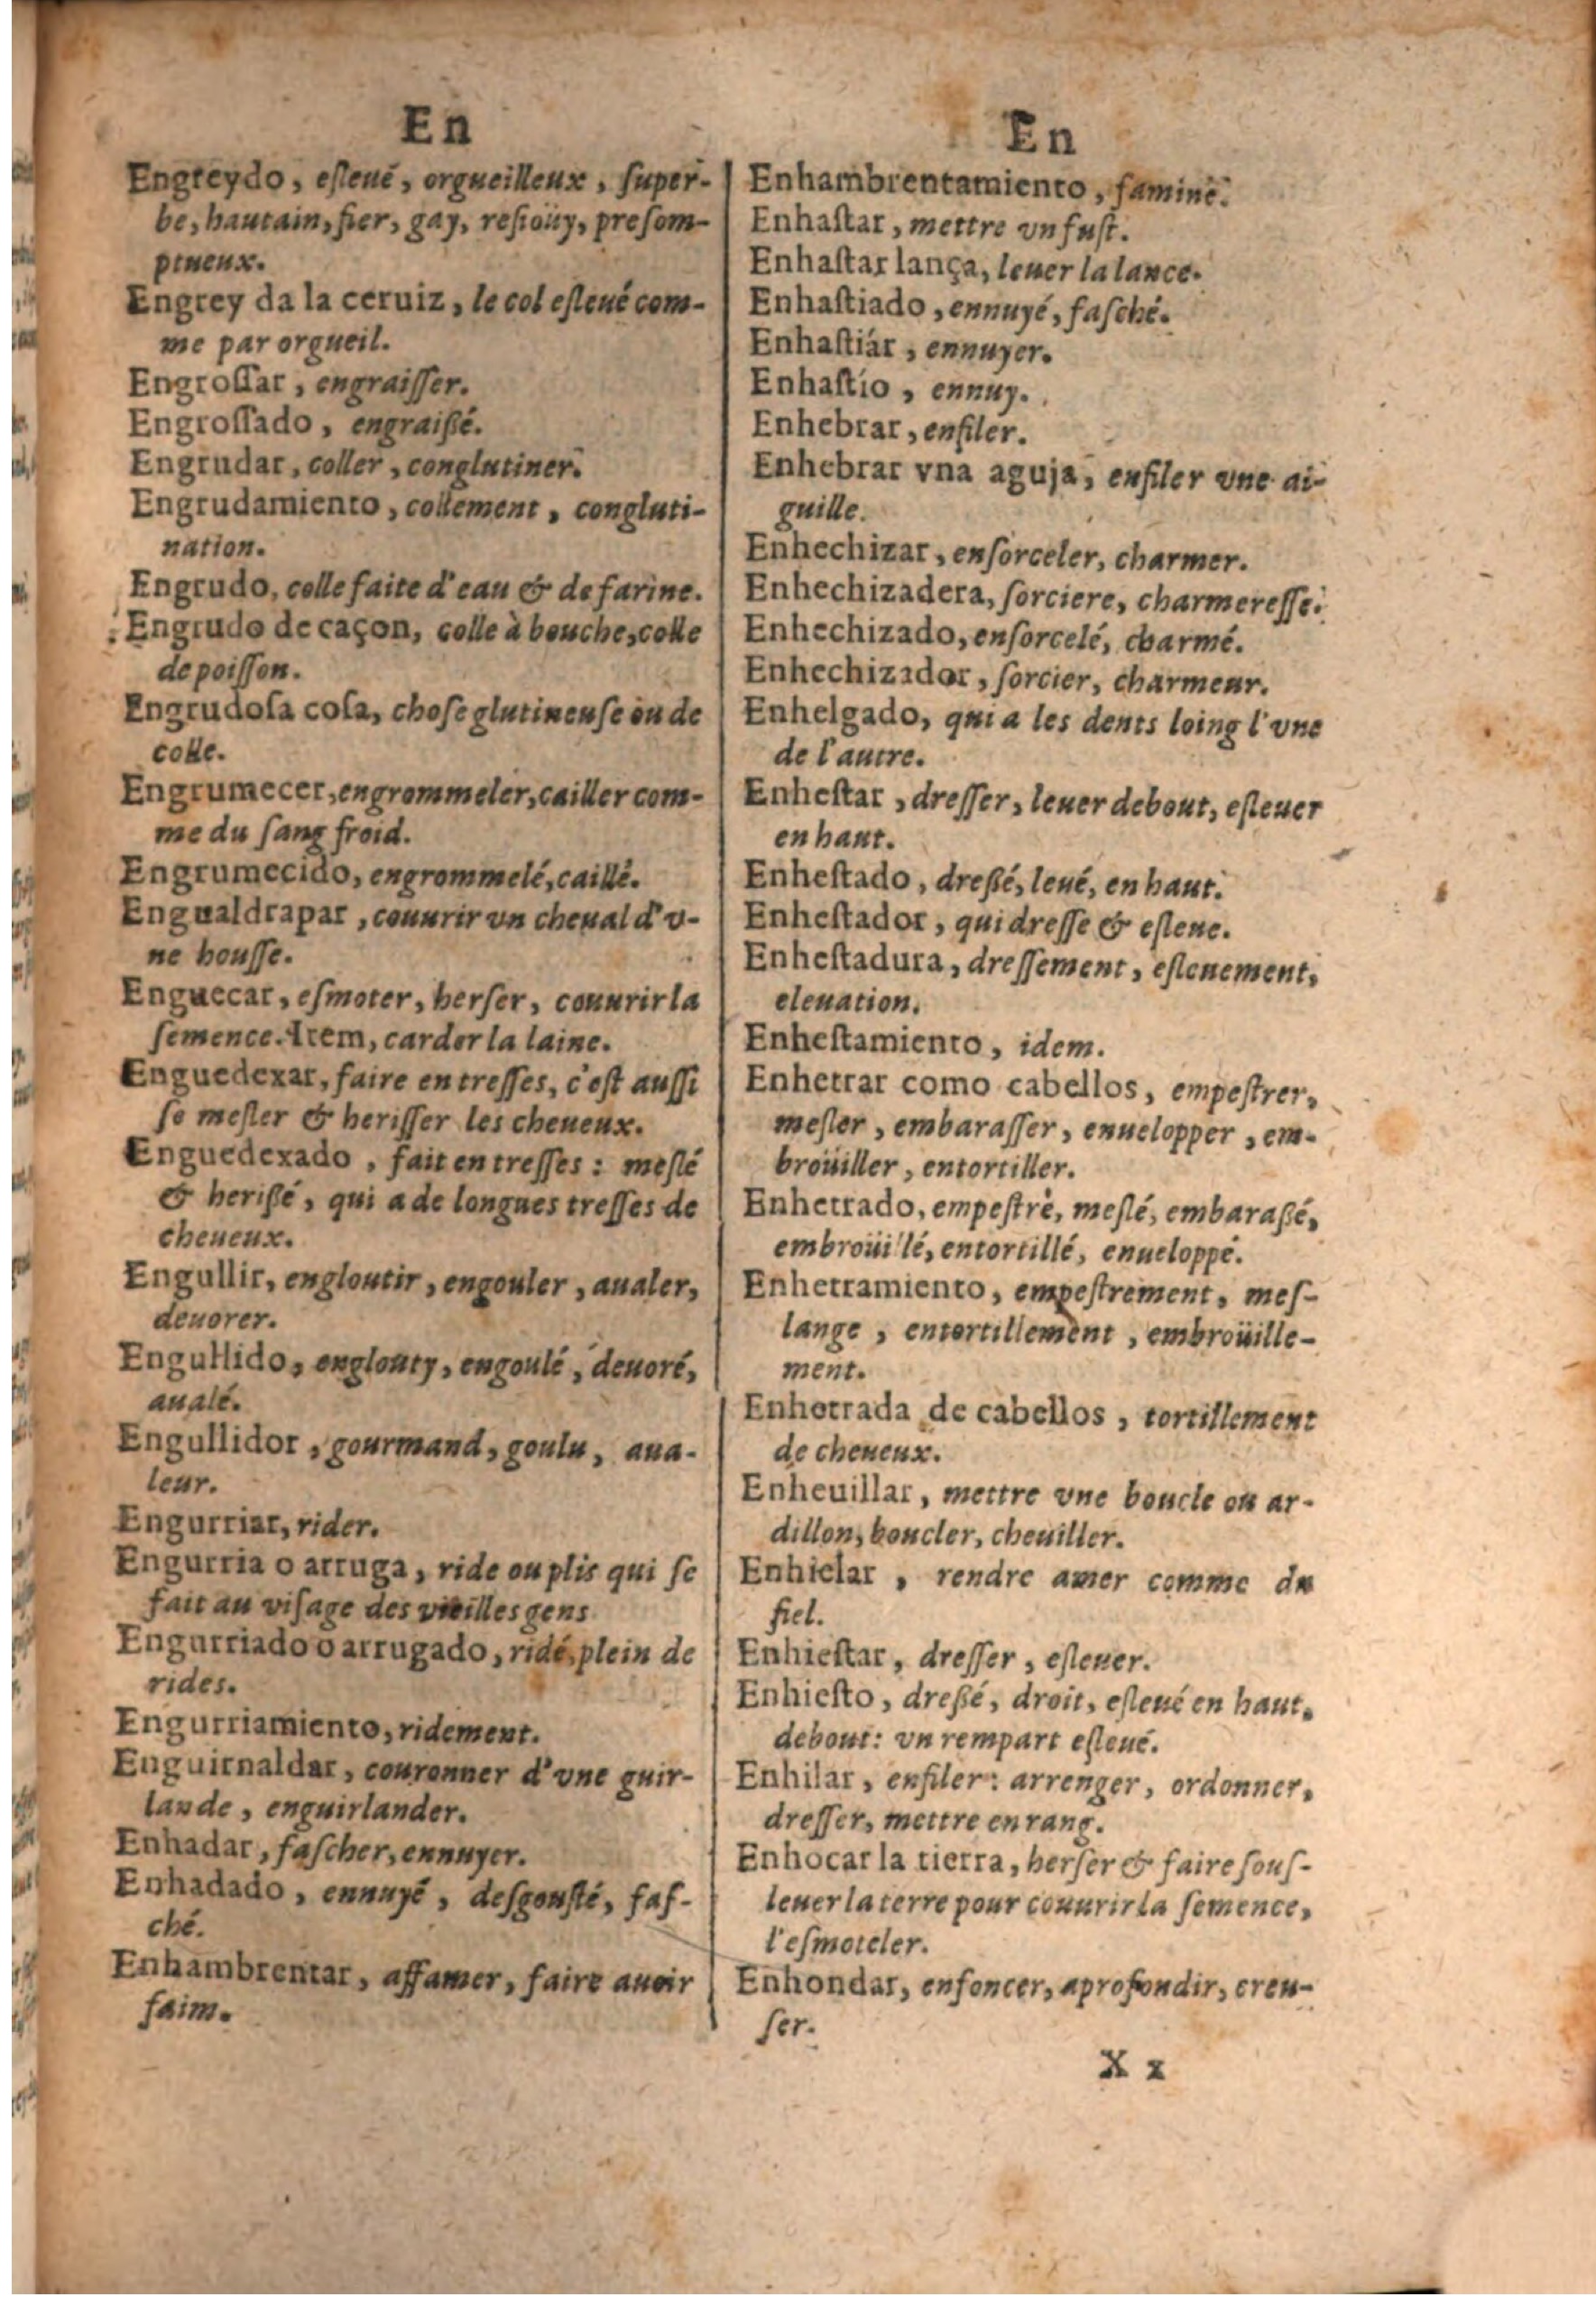 En
Engreydo, eſleué, orgueilleux, ſuper-
be, hautain, fier, gay, reſioüy, preſom-
ptueux.
Engrey da la ceruiz, le col eſleué com-
me par orgueil.
Engroſſar, engraiſſer.
Engroſſado, engraißé.
Engrudar, coller, conglutiner.
Engrudamiento, collement, congluti-
nation.
Engrudo, colle faite d'eau & de farine.
Engrudo de caçon, colle à bouche, colle
de poiſſon.
Engrudoſa coſa, choſe glutineuſe ou de
colle.
Engrumecer, engrommeler, cailler com-
me du ſang froid.
Engrumecido, engrommelé, caillé.
Engualdrapar, couurir vn cheual d'v-
ne houſſe.
Enguecar, eſmoter, herſer, couurir la
ſemence. Item, carder la laine.
Enguedexar, faire en treſſes, c'eſt auſſi
ſe meſler & heriſſer les cheueux.
Enguedexado, fait en treſſes: meſlé
& herißé, qui a de longues treſſes de
cheueux.
Engullir, engloutir, engouler, aualer,
deuorer.
Engullido, englouty, engoulé, deuoré,
aualé.
Engullidor, gourmand, goulu, aua-
leur.
Engurriar, rider.
Engurria o arruga, ride ou plis qui ſe
fait au viſage des vieilles gens
Engurriado o arrugado, ridé, plein de
rides.
Engurriamiento, ridement.
Enguirnaldar, couronner d'vne guir-
lande, enguirlander.
Enhadar, faſcher, ennuyer.
Enhadado, ennuyé, deſgouſté, faſ-
ché.
Enhambrentar, affamer, faire auoir
faim.
En
Enhambrentamiento, famine.
Enhaſtar, mettre vn fuſt.
Enhaſtar lança, leuer la lance.
Enhaſtiado, ennuyé, faſché.
Enhaſtiár, ennuyer.
Enhaſtío, ennuy.
Enhebrar, enfiler.
Enhebrar vna aguja, enfiler vne ai-
guille.
Enhechizar, enſorceler, charmer.
Enhechizadera, ſorciere, charmereſſe.
Enhechizado, enſorcelé, charmé.
Enhechizador, ſorcier, charmeur.
Enhelgado, qui a les dents loing l'vne
de l'autre.
Enheſtar, dreſſer, leuer debout, eſleuer
en haut.
Enheſtado, dreßé, leué, en haut.
Enheſtador, qui dreſſe & eſleue.
Enheſtadura, dreſſement, eſleuement,
eleuation.
Enheſtamiento, idem.
Enhetrar como cabellos, empeſtrer,
meſler, embaraſſer, enuelopper, em-
broüiller, entortiller.
Enhetrado, empeſtrè, meſlé, embaraßé,
embroüillé, entortillé, enueloppé.
Enhetramiento, empeſtrement, meſ-
lange, entortillement, embroüille-
ment.
Enhotrada de cabellos, tortillement
de cheueux.
Enheuillar, mettre vne boucle ou ar-
dillon, boucler, cheuiller.
Enhielar, rendre amer comme du
fiel.
Enhieſtar, dreſſer, eſleuer.
Enhieſto, dreßé, droit, eſleué en haut,
debout: vn rempart eſleué.
Enhilar, enfiler: arrenger, ordonner,
dreſſer, mettre en rang.
Enhocar la tierra, herſer & faire ſouſ-
leuer la terre pour couurir la ſemence,
l'eſmoteler.
Enhondar, enfoncer, aprofondir, creu-
ſer.
X x